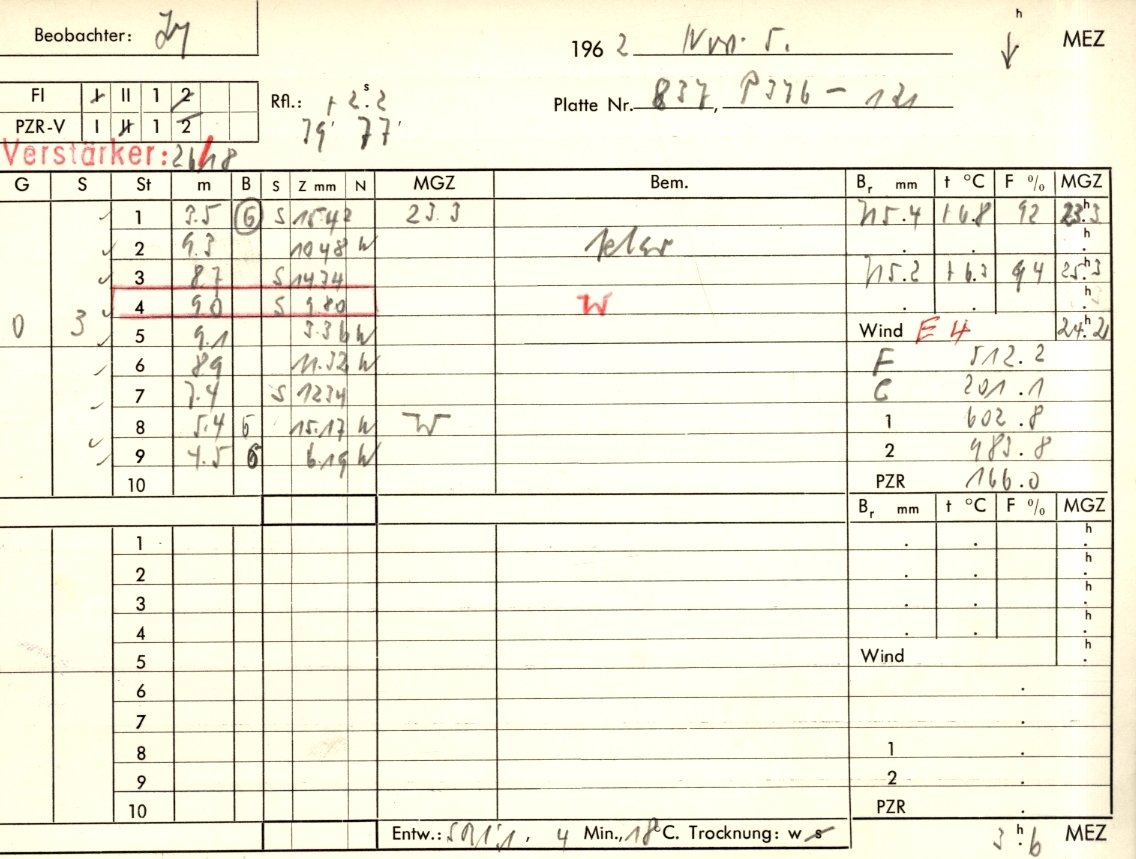 Beobachter:
1962 Nov. 5. h MEZ
FI I II 1 2
PZR-V I II 1 2
Rfl.: + 2.2 s
79' 77'
Platte Nr. 837, P376 - 121
Verstärker: 26/18
G S St m B S Z mm N MGZ Bem. Br mm t °C F % MGZ
1 3.5 6 S 15.42 23.3 715.4 +6.8 92 23.3 h
2 9.3 10.48 W klar h
3 8.7 S 14.34 715.2 +6.3 94 25.3 h
4 9.0 S 9.80 W h
0 3 5 9.1 3.36 W Wind E 4 24.2 h
6 8.9 11.32 W F 512.2
7 7.4 S 12.34 C 201.1
8 5.4 6 15.17 W W 1 602.8
9 4.5 6 6.19 W 2 983.8
10 PZR 166.0
Br mm t °C F % MGZ
1 h
2 h
3 h
4 h
5 Wind h
6
7
8 1
9 2
10 PZR
Entw.: 4 Min., 18°C. Trocknung: w s
3.6 h MEZ